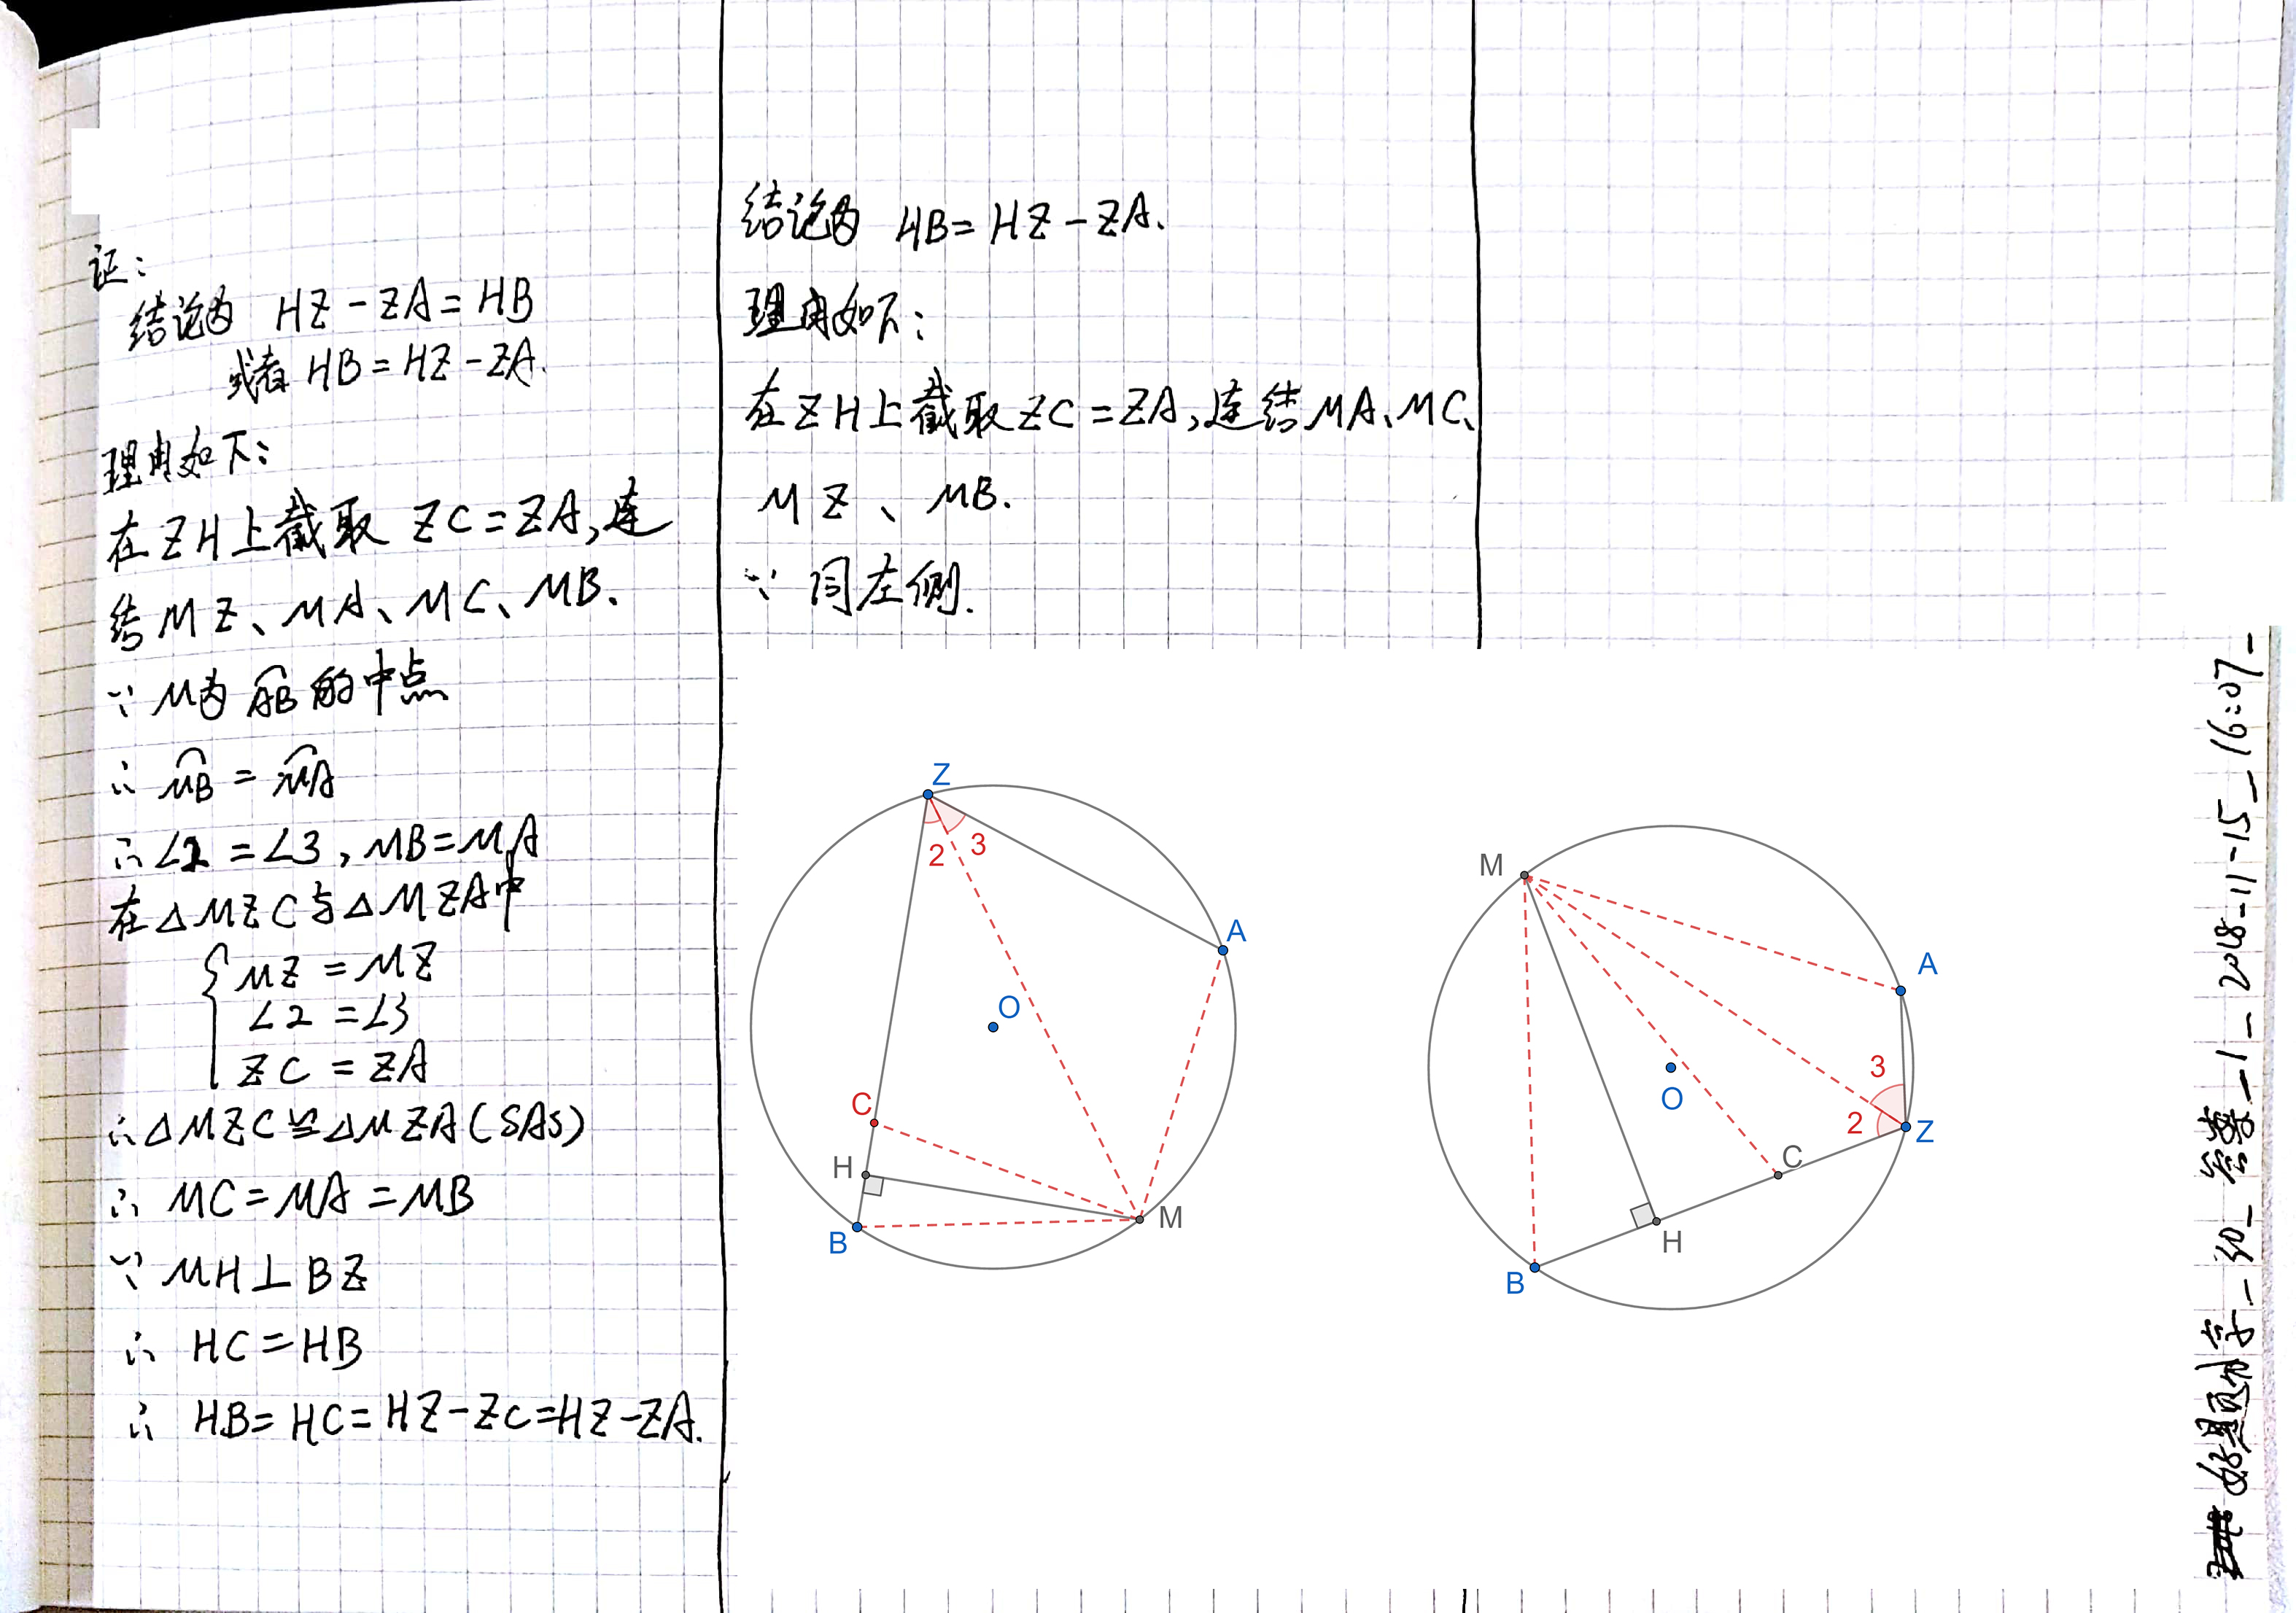 证:
结论为 HZ-ZA=HB
或者 HB=HZ-ZA.
理由如下:
在ZH上截取 ZC=ZA,连
结MZ、MA、MC、MB.
∵ M为 A͡B 的中点
∴ M͡B = M͡A
∴ ∠2=∠3, MB=MA
在△MZC与△MZA中
MZ = MZ
∠2 = ∠3
ZC = ZA
∴ △MZC≌△MZA(SAS)
∴ MC=MA=MB
∵ MH⊥BZ
∴ HC=HB
∴ HB=HC=HZ-ZC=HZ-ZA.
结论为 HB=HZ-ZA.
理由如下:
在ZH上截取ZC=ZA,连结MA、MC、
MZ、MB.
∵ 同左侧.
Z
2
3
A
O
C
H
B
M
M
A
3
O
2
Z
C
H
B
好题随享-50-答案-1-2018-11-15-16:07-